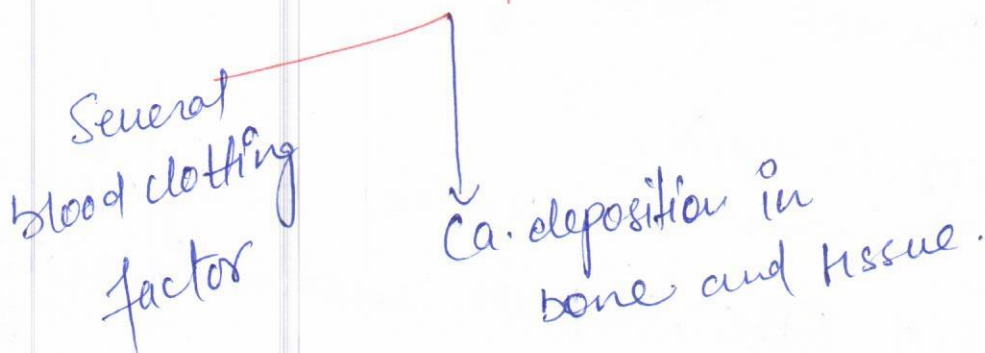 Several
blood clotting
factor
Ca. deposition in
bone and tissue.